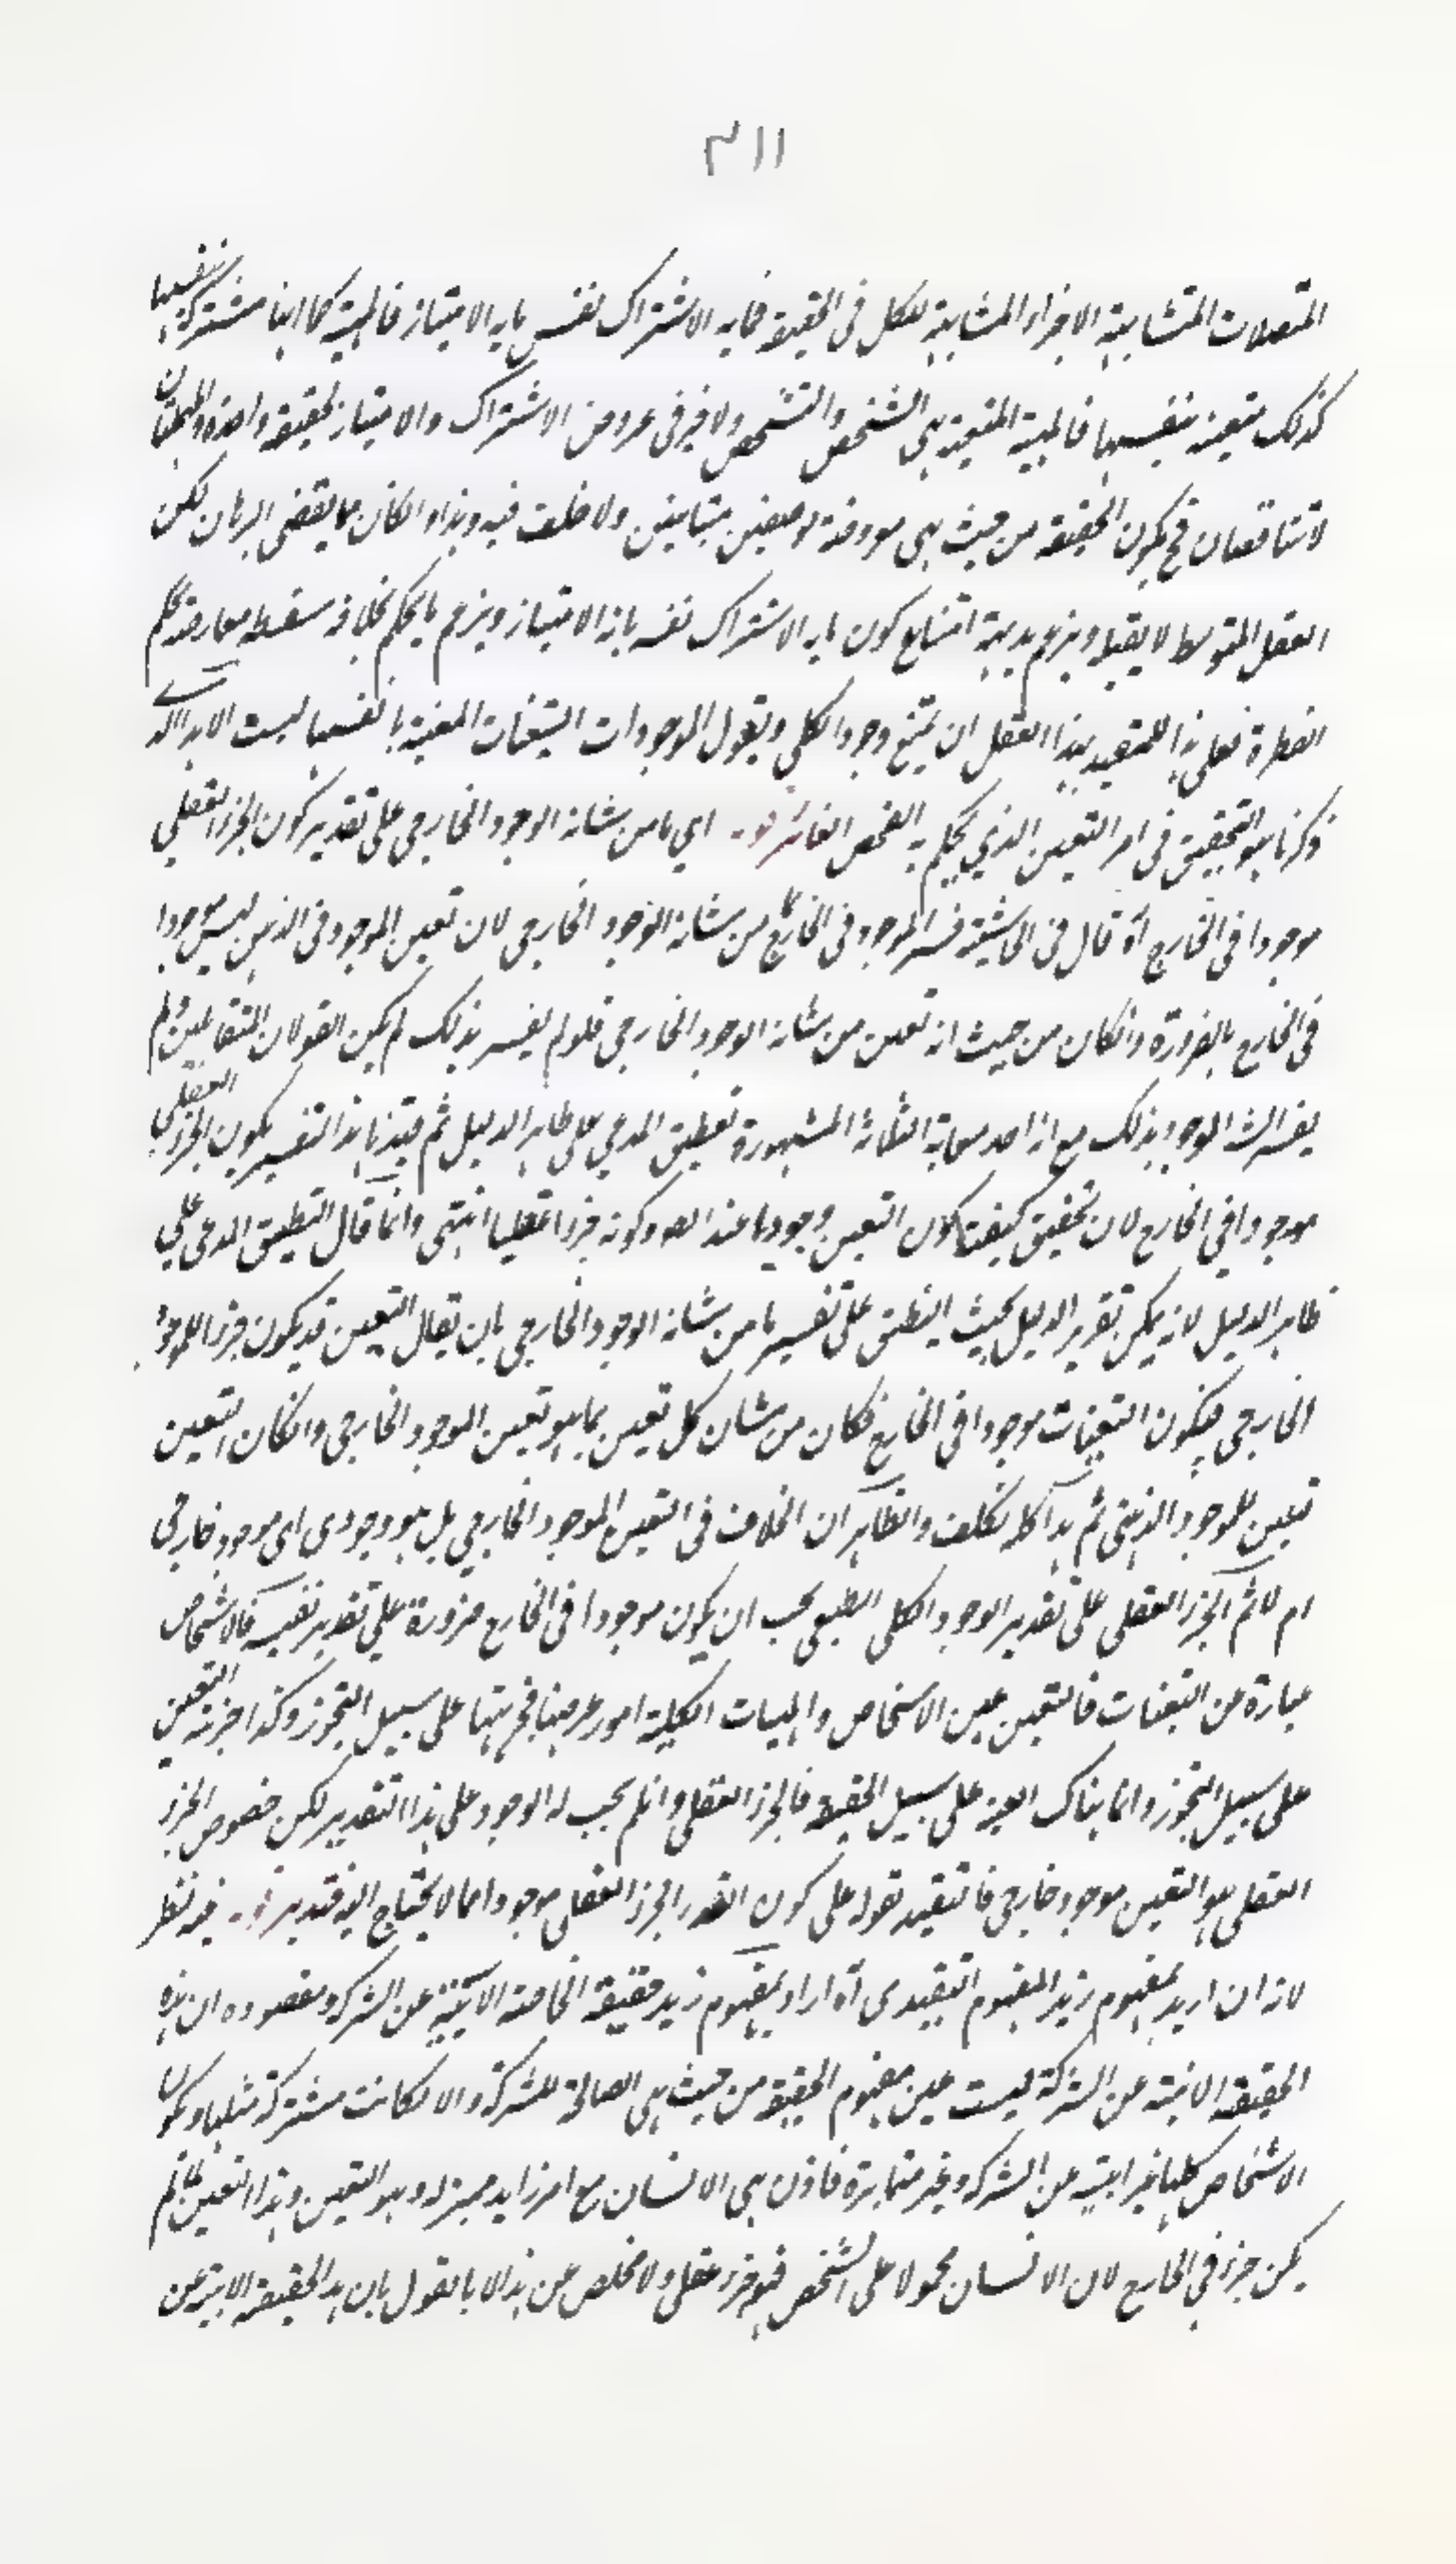 ٣١١
المتصلات المتشابهة الاجزاء المشابهة للكل فى الحقيقة فما به الاشتراك نفس ما به الامتياز فالمهية كما انها مشتركة بنفسها
كذلك متعينة بنفسها فالمهية المتعينة هى الشخص والتشخص ولا ضير فى عروض الاشتراك والامتياز لحقيقة واحدة والجهتان
لا تتناقضان فح يكون الحقيقة من حيث هى معروضة لوصفين متباينين ولا خلف فيه وهذا وانكان مما يقتضى البرهان لكن
العقل المتوسط لا يقبله ويزعم بديهة امتناع كون ما به الاشتراك نفس ما به الامتياز ويزعم ما يحكم بخلافه سفسطه معارضة لحكم
الفطرة فعلى هذا للمتقيد بهذا العقل ان يمنع وجود الكلي ويقول الموجودات التعينات المتعينة بانفسها ليست الا هذا الذى
ذكرنا هو التحقيق فى امر التعين الذي يحكم به الفحص الغائر قوله اي ما من شانه الوجود الخارجى على تقدير كون الجزء العقلي
موجودا فى الخارج آه قال فى الحاشية فسر الموجود فى الخارج بما من شانه الوجود الخارجى لان تعين الموجود فى الذهن ليس موجودا
فى الخارج بالضرورة وانكان من حيث انه تعين من شانه الوجود الخارجى فلو لم يفسر بذلك لم يكن القولان المتقابلين ولم
يفسر الموجود بذلك مع انه احد معانيه الثلثة المشهورة تطبيق المدعي على ظاهر الدليل ثم قيد هذا التفسير بكون الجزء العقلي
موجودا فى الخارج لان تحقيق كيفية كون التعين وجوديا عند المص وكونه جزءا عقليا انتهى وانما قال لتطبيق المدعى على
ظاهر الدليل لانه يمكن تقرير الدليل بحيث ينطبق على تفسير ما من شانه الوجود الخارجى بان يقال التعين قد يكون جزءا للموجود
الخارجى فيكون التعينات موجودا فى الخارج فكان من شان كل تعين بما هو تعين الوجود الخارجى وانكان التعين
تعين للموجود الذهنى ثم هذا كله تكلف والظاهر ان الخلاف فى التعين الموجود الخارجى بل هو وجودى اى موجود خارجى
ام لا ثم الجزء العقلى على تقدير الوجود الكلى الطبعى يجب ان يكون موجودا فى الخارج ضرورة على تقدير نفيه فالاشخاص
عبارة عن التعينات فالتعين عين الاشخاص والمهيات الكلية امور عرضية فجزئيتها على سبيل التجوز وكذا جزئية التعين
على سبيل التجوز وانما هناك العينية على سبيل الحقيقة فالجزء العقلى وانلم يجب له الوجود على هذا التقدير لكن خصوص الجزء
العقلى هو التعين موجود خارجى فالتقييد بقوله على كون القدر الجزء العقلى موجودا مما لا يحتاج اليه فتدبر قوله فيه نظر
لانه ان اريد بمفهوم زيد المفهوم التقييدى آه اراد بمفهوم زيد حقيقة الخاصة الآبية عن الشركة ومقصوده ان هذه
الحقيقة الابية عن الشركة ليست عين مفهوم الحقيقة من حيث هى الصالحة للشركة والا لكانت مشتركة مثلها ويكون
الاشخاص كلها غير ابية عن الشركة وغير متمايزة فاذن هى الانسان مع امر زايد مميز له وهو التعين وهذا التعين لما لم
يكن جزء فى الخارج لان الانسان محمولا على الشخص فهو جزء عقلى ولا مخلص عن هذا الا بالقول بان هذه الحقيقة الابية عن